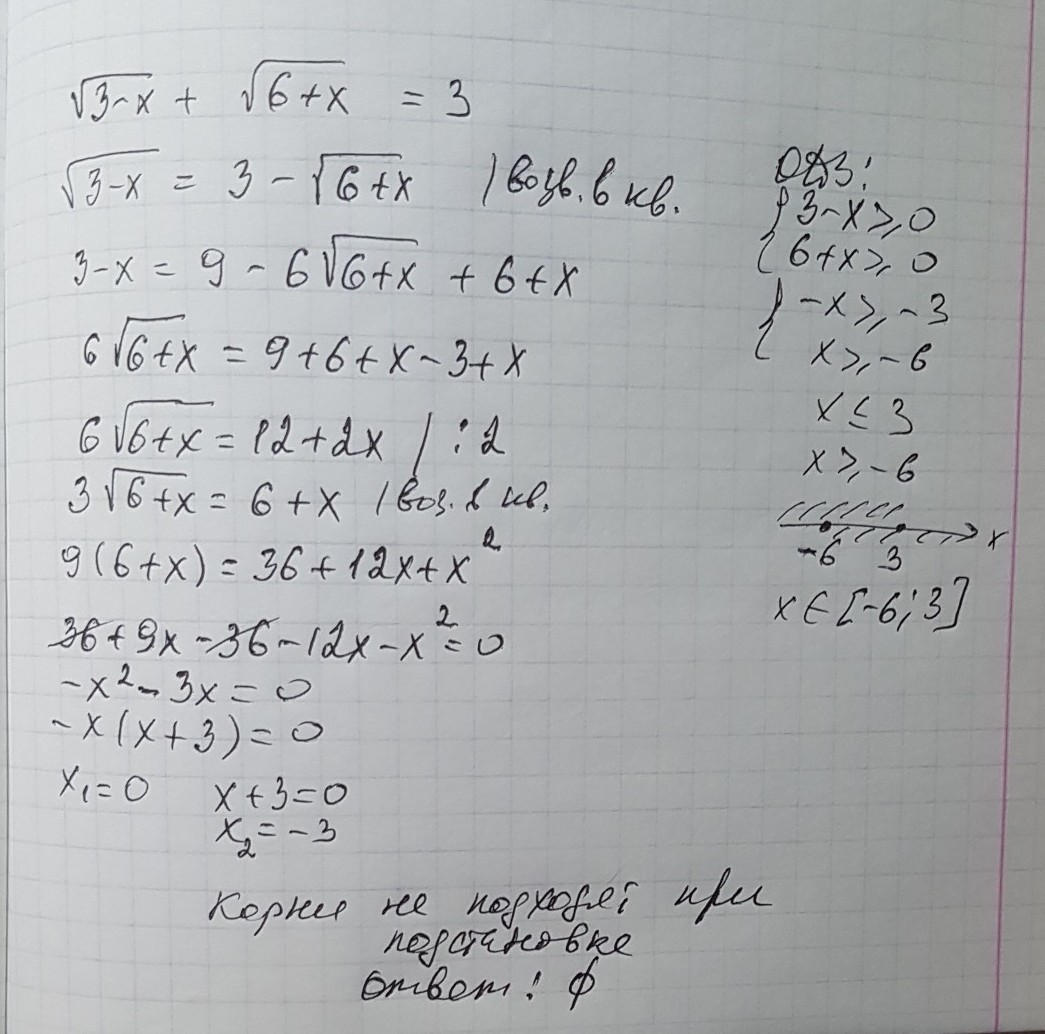 √3-x + √6+x = 3
√3-x = 3 - √6+x / возв. в кв.
3-x = 9 - 6√6+x + 6+x
6√6+x = 9+6+x-3+x
6√6+x = 12+2x / :2
3√6+x = 6+x / воз. в кв.
9(6+x) = 36+12x+x²
36+9x-36-12x-x²=0
-x²-3x=0
-x(x+3)=0
x₁=0 x+3=0
x₂=-3
Корни не подходят при
подстановке
ответ: ϕ
ОДЗ:
{ 3-x ⩾ 0
6+x ⩾ 0
{ -x ⩾ -3
x ⩾ -6
x ≤ 3
x ⩾ -6
-6 3 x
x ∈ [-6; 3]